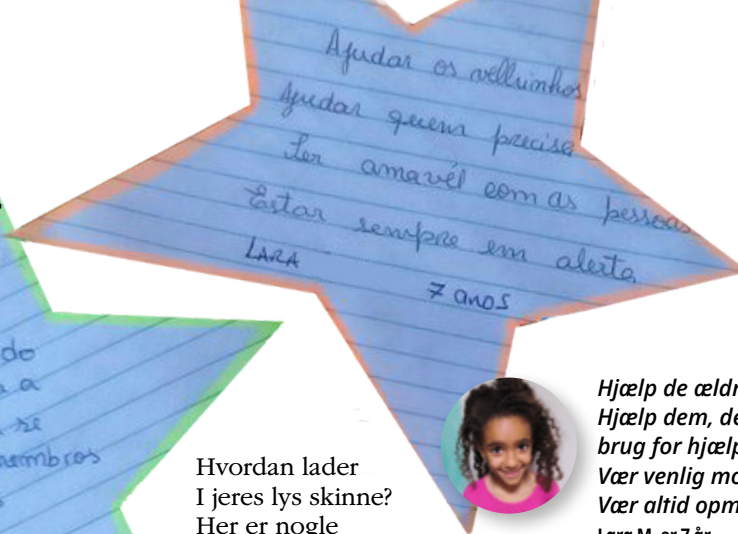 Ajudar os vellinhos
Ajudar quem precisa
Ser amavél com as pessoas
Estar sempre em alerta
LARA 7 anos
do
a a
re
membros
Hvordan lader
I jeres lys skinne?
Her er nogle
Hjælp de ældr
Hjælp dem, de
brug for hjælp
Vær venlig mo
Vær altid opm
Lara M. er 7 år